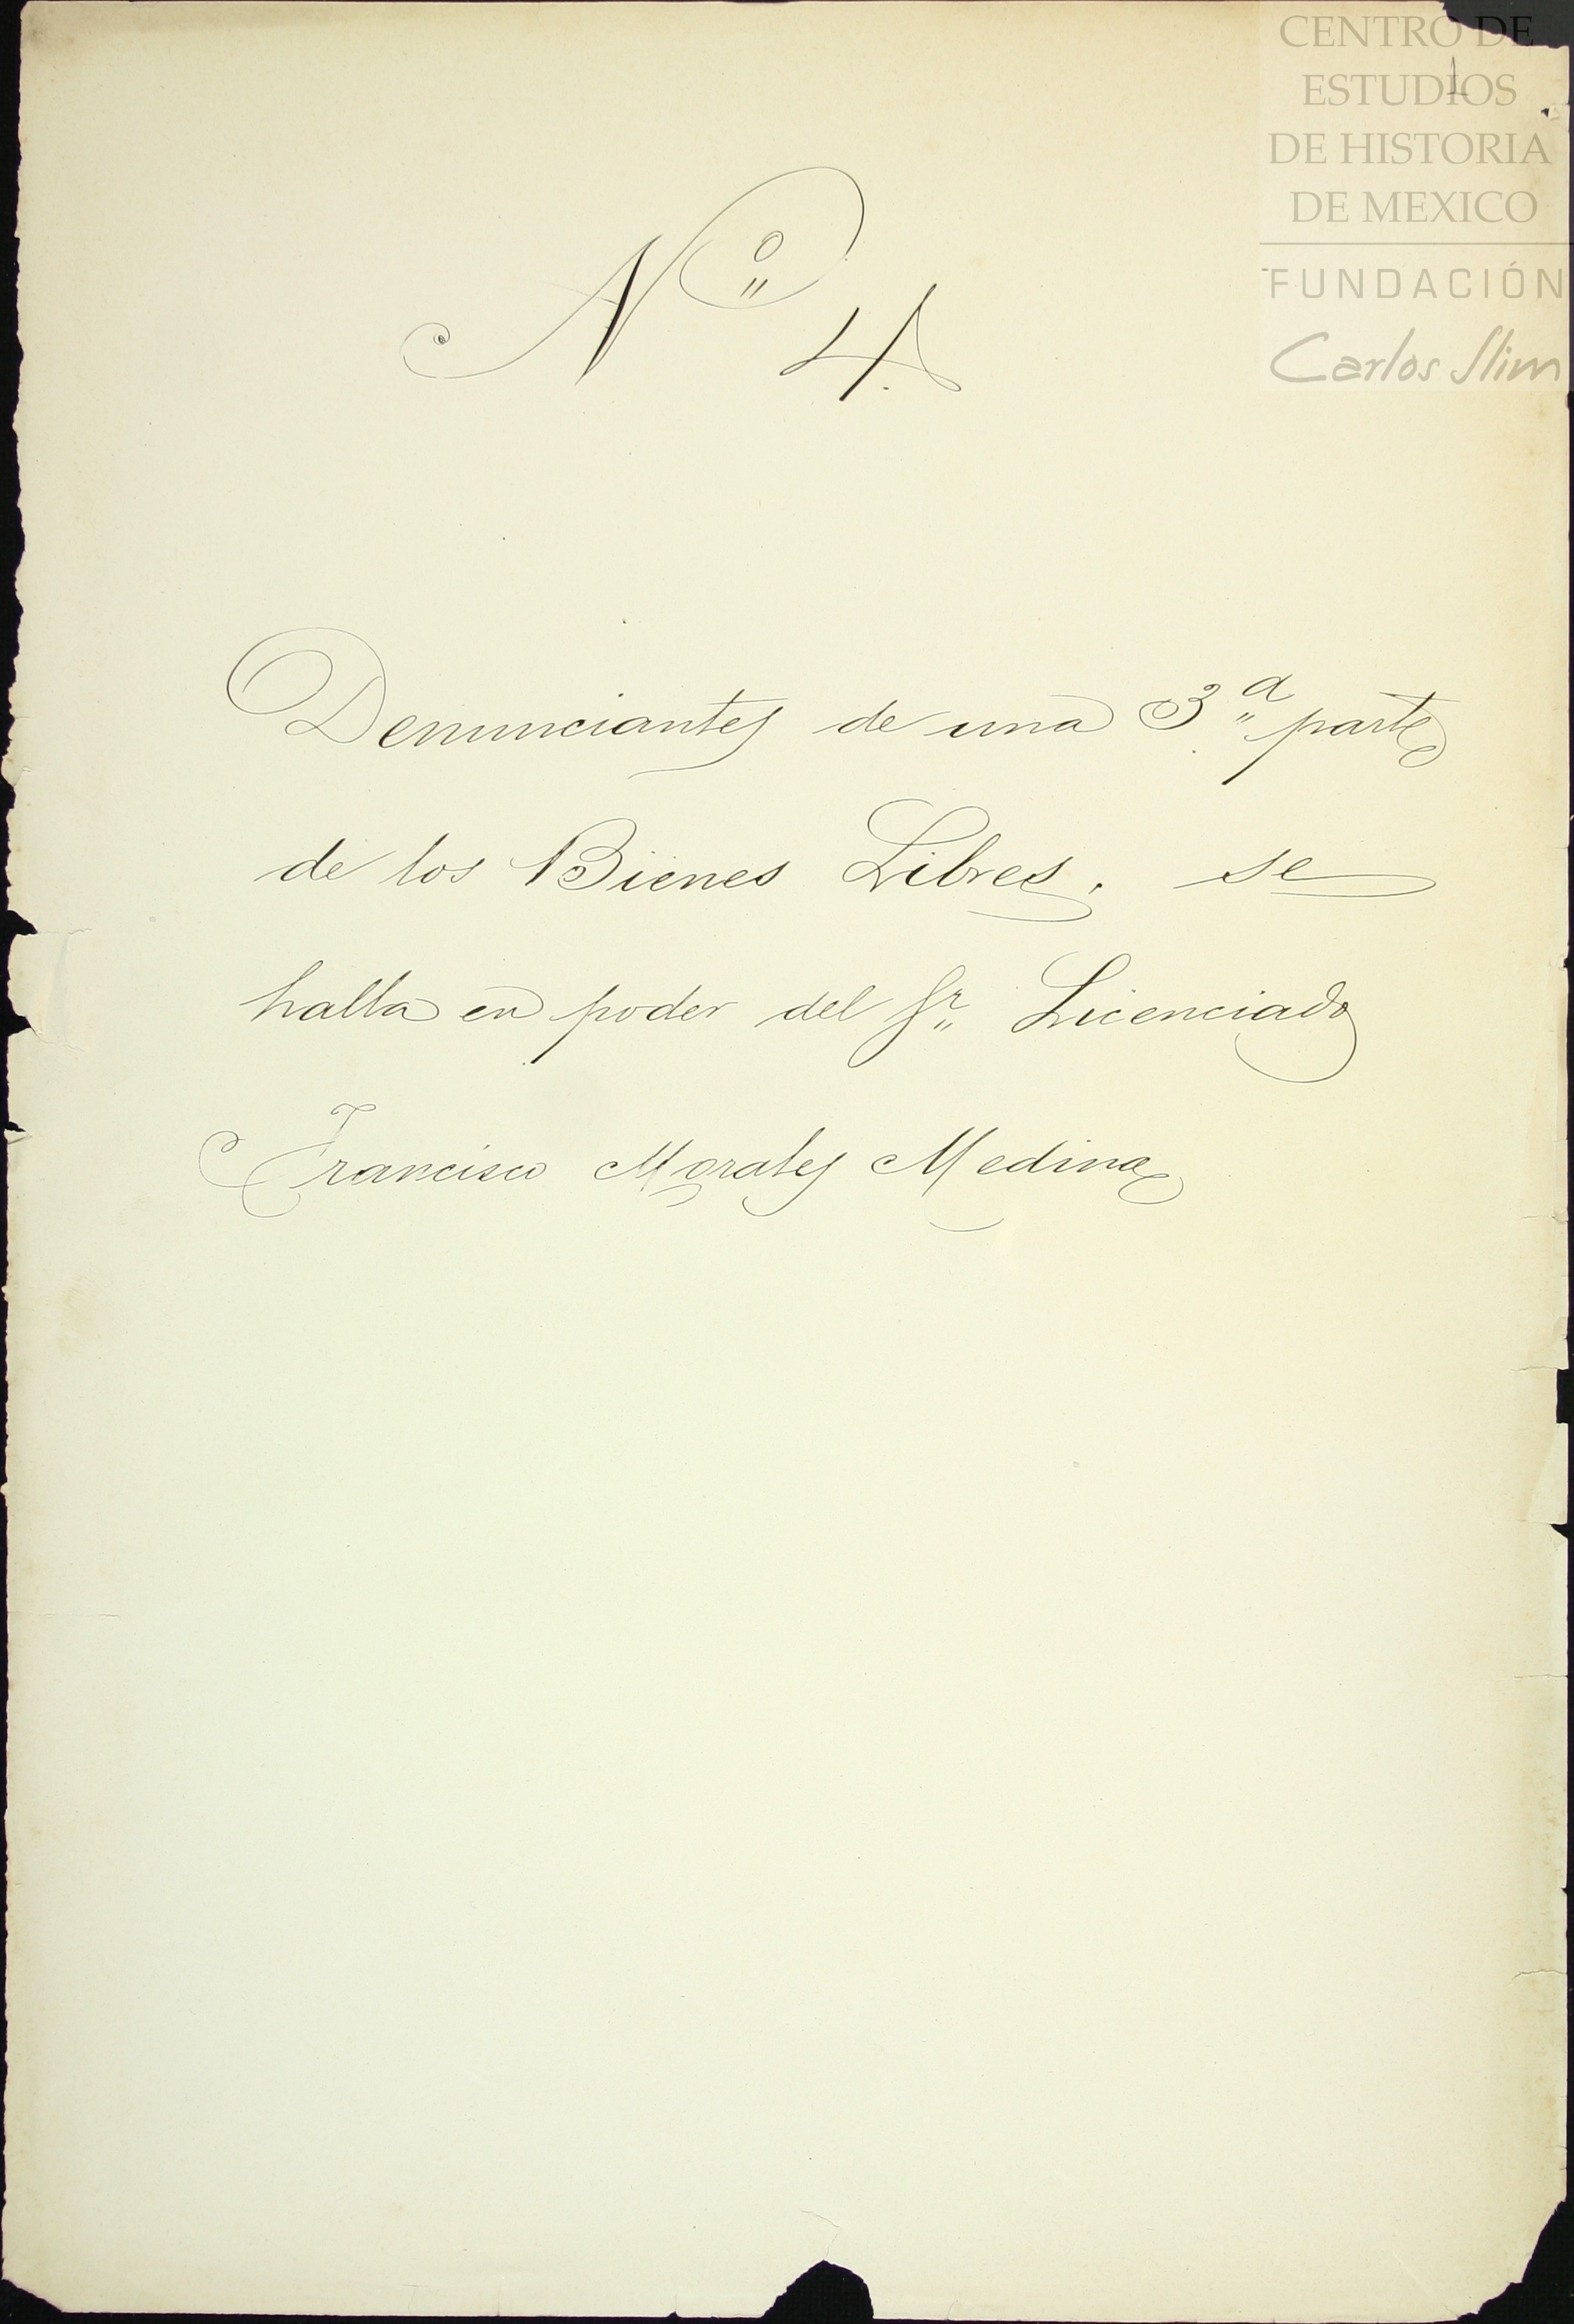 CENTRO DE
ESTUDIOS
DE HISTORIA
DE MEXICO
FUNDACIÓN
Carlos Slim
1
Nº 4.
Denunciantes de una 3ª parte
de los Bienes Libres. se
halla en poder del Sr. Licenciado
Francisco Morales Medina